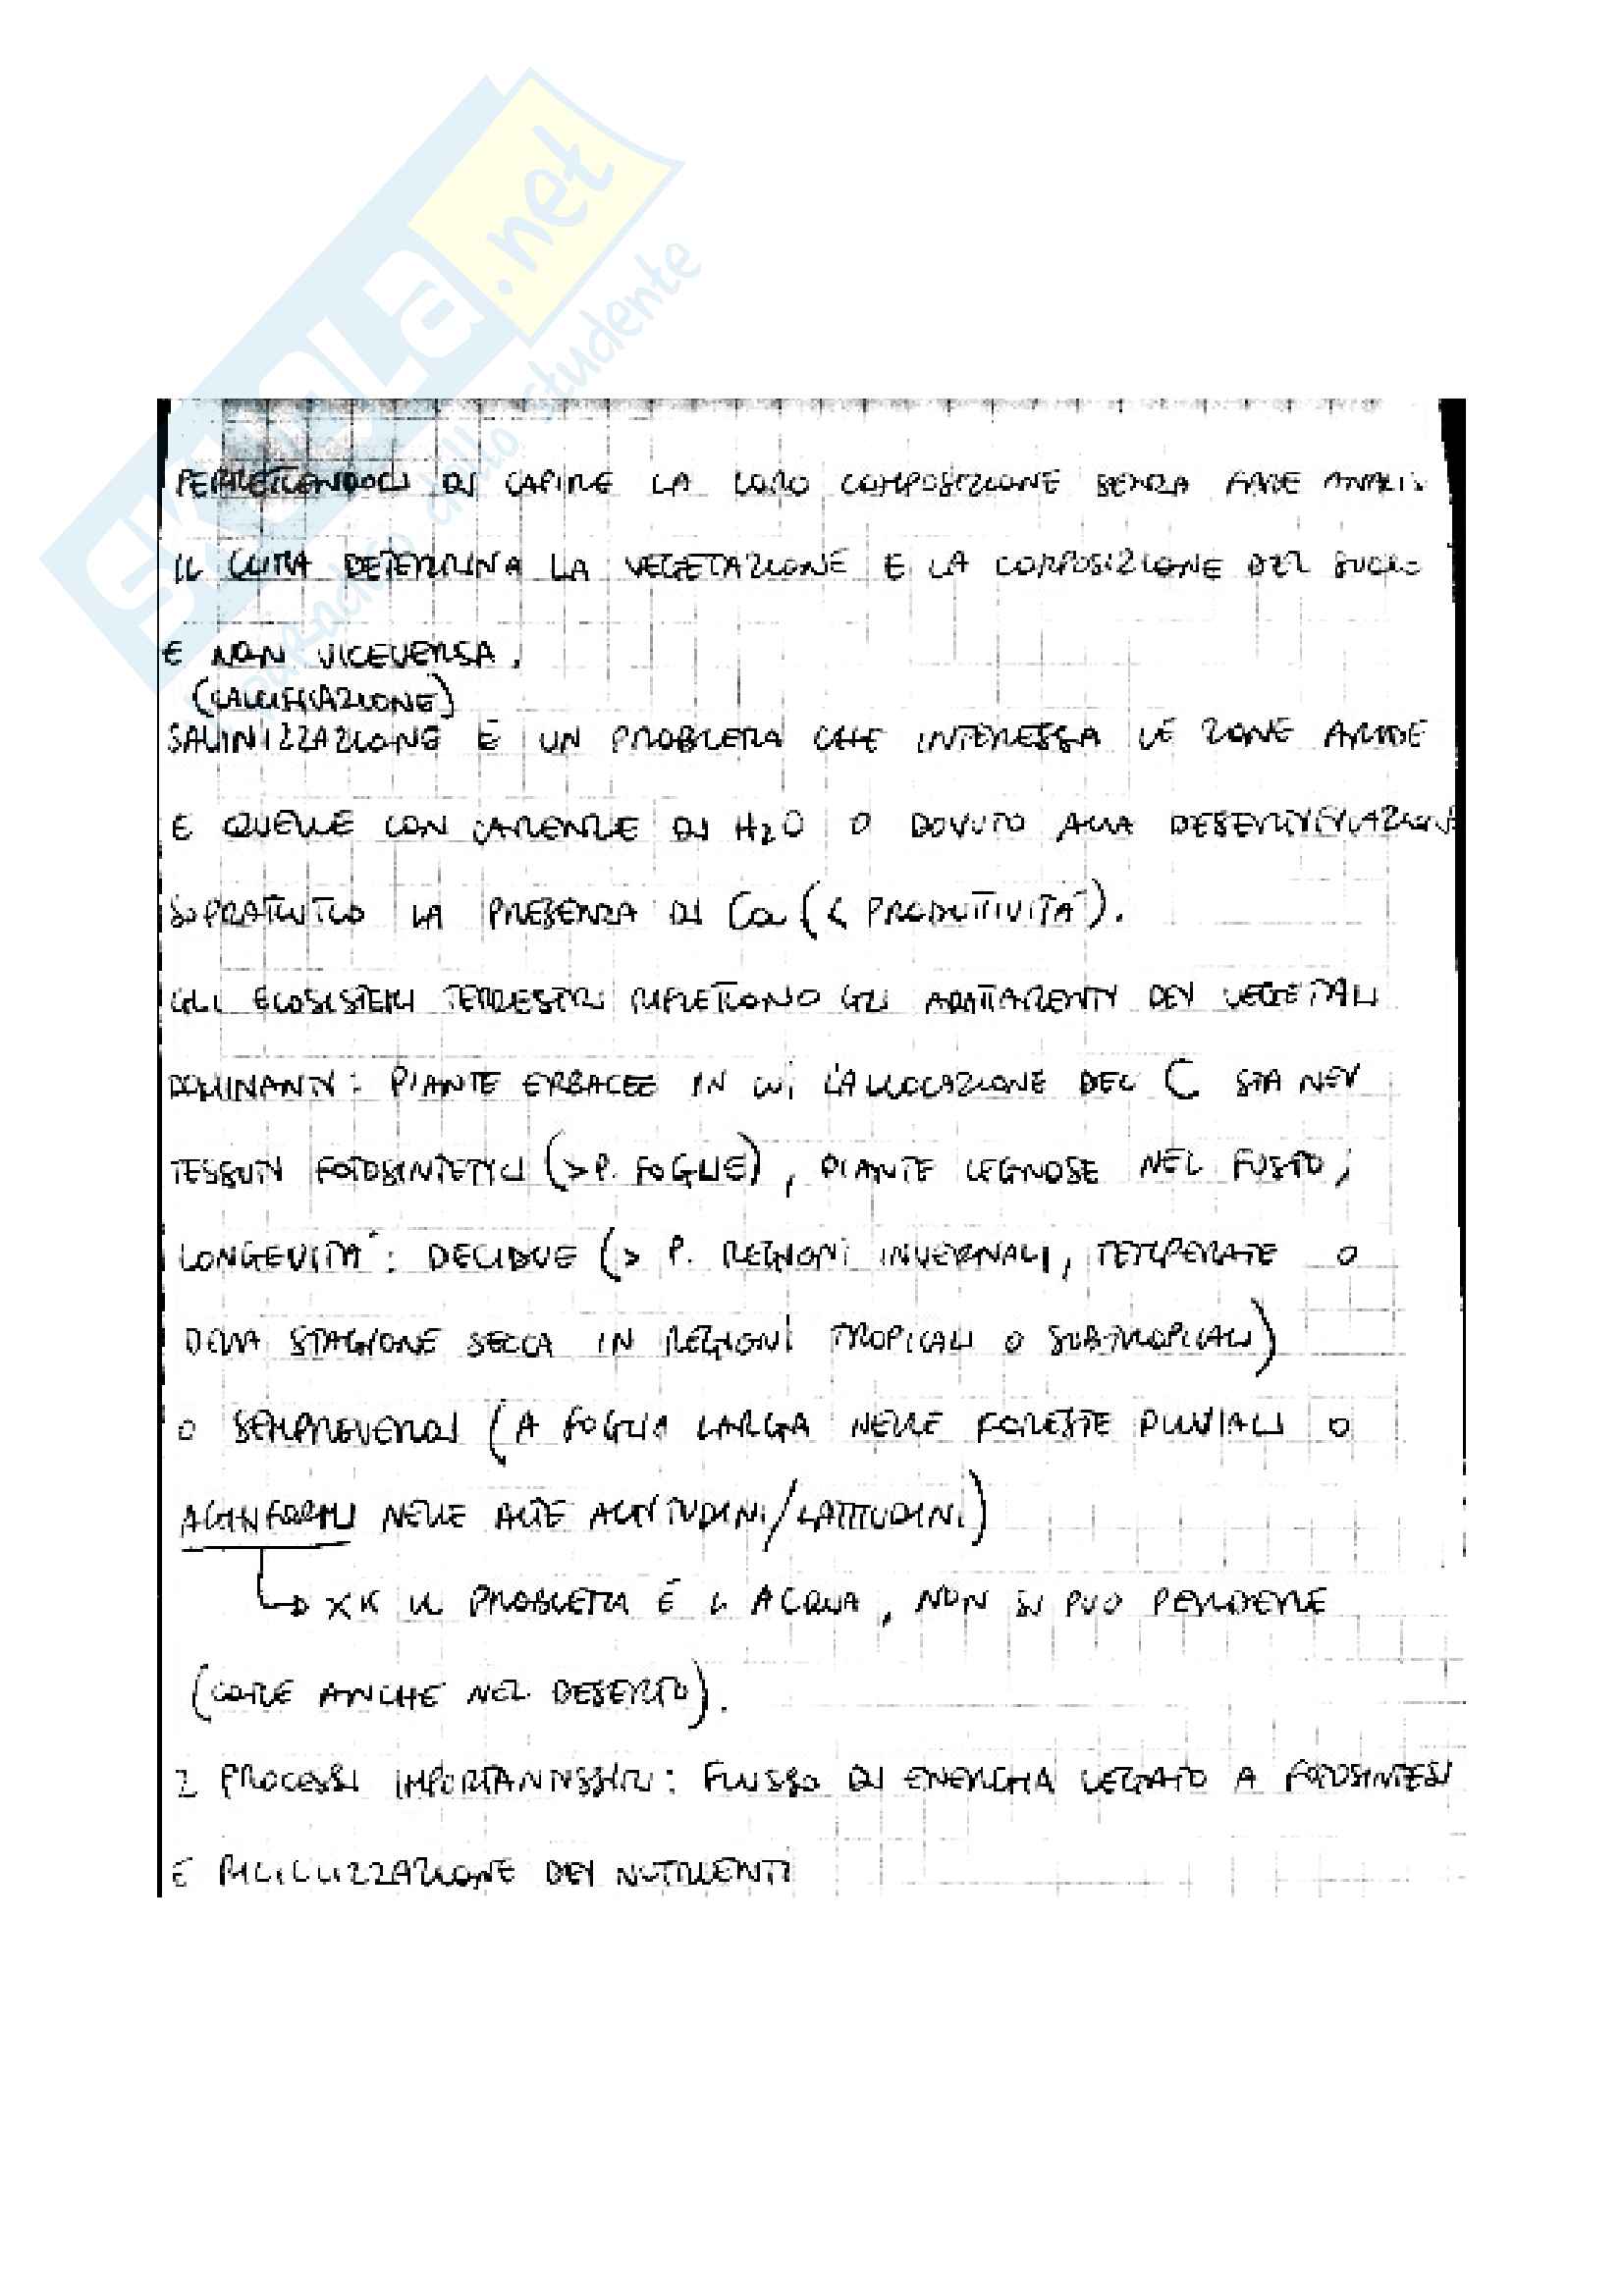 SKUOLA.net
PERMETTENDOCI DI CAPIRE LA LORO COMPOSIZIONE SENZA FARE ANALISI
IL CLIMA DETERMINA LA VEGETAZIONE E LA COMPOSIZIONE DEL SUOLO
E NON VICEVERSA.
(CALCIFICAZIONE)
SALINIZZAZIONE È UN PROBLEMA CHE INTERESSA LE ZONE ARIDE
E QUELLE CON CARENZE DI H2O O DOVUTO ALLA
SOPRATUTTO LA PRESENZA DI Ca (< PRODUTTIVITÀ).
GLI ECOSISTEMI TERRESTRI RIFLETTONO GLI ADATTAMENTI DEI VEGETALI
DOMINANTI: PIANTE ERBACEE IN CUI L'ALLOCAZIONE DEL C STA NEI
TESSUTI FOTOSINTETICI (> P. FOGLIE), PIANTE LEGNOSE NEL FUSTO;
LONGEVITÀ: DECIDUE (> P. REGIONI INVERNALI, TEMPERATE O
DELLA STAGIONE SECCA IN REGIONI TROPICALI O SUB-TROPICALI)
O SEMPREVERDI (A FOGLIA LARGA NELLE FORESTE PLUVIALI O
AGHIFORMI NELLE ALTE ALTITUDINI/LATITUDINI)
XK IL PROBLEMA È L'ACQUA, NON SI PUO PERDERE
(COME ANCHE NEL DESERTO).
2 PROCESSI IMPORTANTISSIMI: FLUSSO DI ENERGIA LEGATO A FOTOSINTESI
E RICICLIZZAZIONE DEI NUTRIENTI